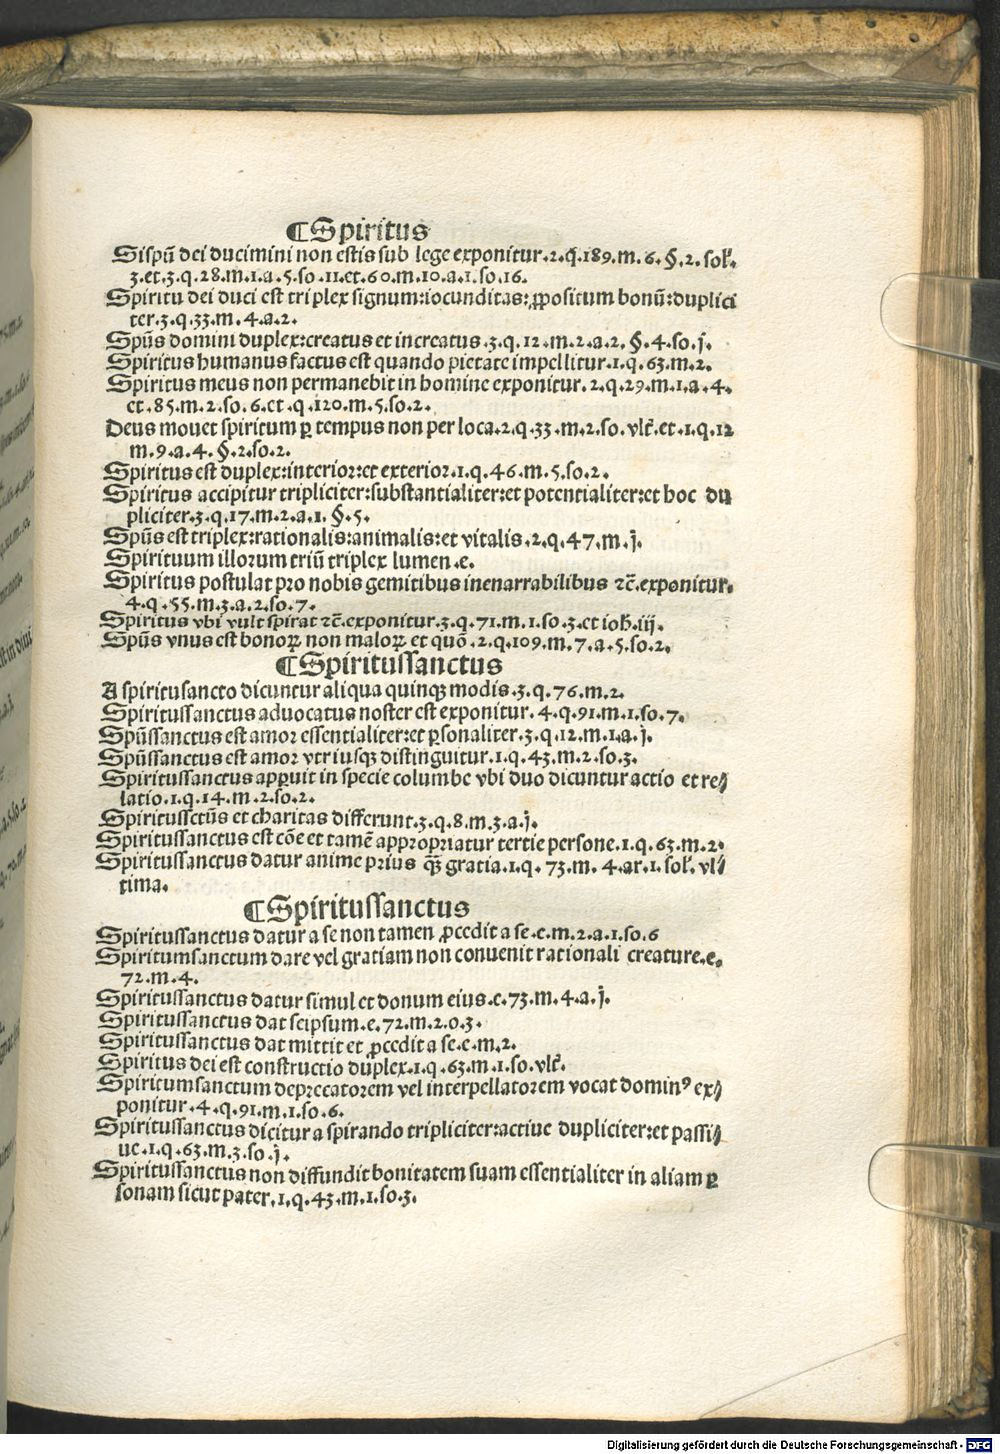 ¶Spiritus
Si spũ dei ducimini non estis sub lege exponitur.2.q̃.189.m.6.§.2.sol̃.
3.et.3.q.28.m.1.a.5.so.11.et.60.m.10.a.1.so.16.
Spiritu dei duci est triplex signum:iocunditas:ꝓpositum bonũ:duplici
ter.3.q.33.m.4.a.2.
Spũs domini duplex:creatus et increatus.3.q.12.m.2.a.2.§.4.so.j.
Spiritus humanus factus est quando pietate impellitur.1.q.63.m.2.
Spiritus meus non permanebit in homine exponitur.2.q.29.m.1.a.4.
et.85.m.2.so.6.et.q.120.m.5.so.2.
Deus mouet spiritum ꝑ tempus non per loca.2.q.33.m.2.so.vlt̃.et.1.q.12
m.9.a.4.§.2.so.2.
Spiritus est duplex:interior:et exterior.1.q.46.m.5.so.2.
Spiritus accipitur tripliciter:substantialiter:et potentialiter:et hoc du
pliciter.3.q.17.m.2.a.1.§.5.
Spũs est triplex:rationalis:animalis:et vitalis.2.q.47.m.j.
Spirituum illorum triũ triplex lumen.e.
Spiritus postulat pro nobis gemitibus inenarrabilibus ⁊c̃.exponitur.
4.q.55.m.3.a.2.so.7.
Spiritus vbi vult spirat ⁊c̃.exponitur.3.q.71.m.1.so.3.et ioh̃.iij.
Spũs vnus est bonoꝝ non maloꝝ et quõ.2.q.109.m.7.a.5.so.2.
¶Spiritussanctus
A spiritusancto dicuntur aliqua quinqꝫ modis.3.q.76.m.2.
Spiritussanctus aduocatus noster est exponitur.4.q.91.m.1.so.7.
Spũssanctus est amor essentialiter:et ꝑsonaliter.3.q.12.m.1.a.j.
Spũssanctus est amor vtriusqꝫ distinguitur.1.q.43.m.2.so.3.
Spiritussanctus apꝑuit in specie columbe vbi duo dicuntur actio et re⸗
latio.1.q.14.m.2.so.2.
Spiritussctũs et charitas differunt.3.q.8.m.3.a.j.
Spiritussanctus est cõe et tamẽ appropriatur tertie persone.1.q.63.m.2.
Spiritussanctus datur anime prius q̃ꝫ gratia.1.q.73.m.4.ar.1.sol̃.vl⸗
tima.
¶Spiritussanctus
Spiritussanctus datur a se non tamen ꝓcedit a se.e.m.2.a.1.so.6
Spiritumsanctum dare vel gratiam non conuenit rationali creature.e.
72.m.4.
Spiritussanctus datur simul et donum eius.e.73.m.4.a.j.
Spiritussanctus dat seipsum.e.72.m.2.o.3.
Spiritussanctus dat mittit et ꝓcedit a se.e.m.2.
Spiritus dei est constructio duplex.1.q.63.m.1.so.vlt̃.
Spiritumsanctum deprecatorem vel interpellatorem vocat dominꝰ ex⸗
ponitur.4.q.91.m.1.so.6.
Spiritussanctus dicitur a spirando tripliciter:actiue dupliciter:et passi⸗
ue.1.q.63.m.3.so.j.
Spiritussanctus non diffundit bonitatem suam essentialiter in aliam ꝑ
sonam sicut pater.1.q.43.m.1.so.3.
Digitalisierung gefördert durch die Deutsche Forschungsgemeinschaft - DFG